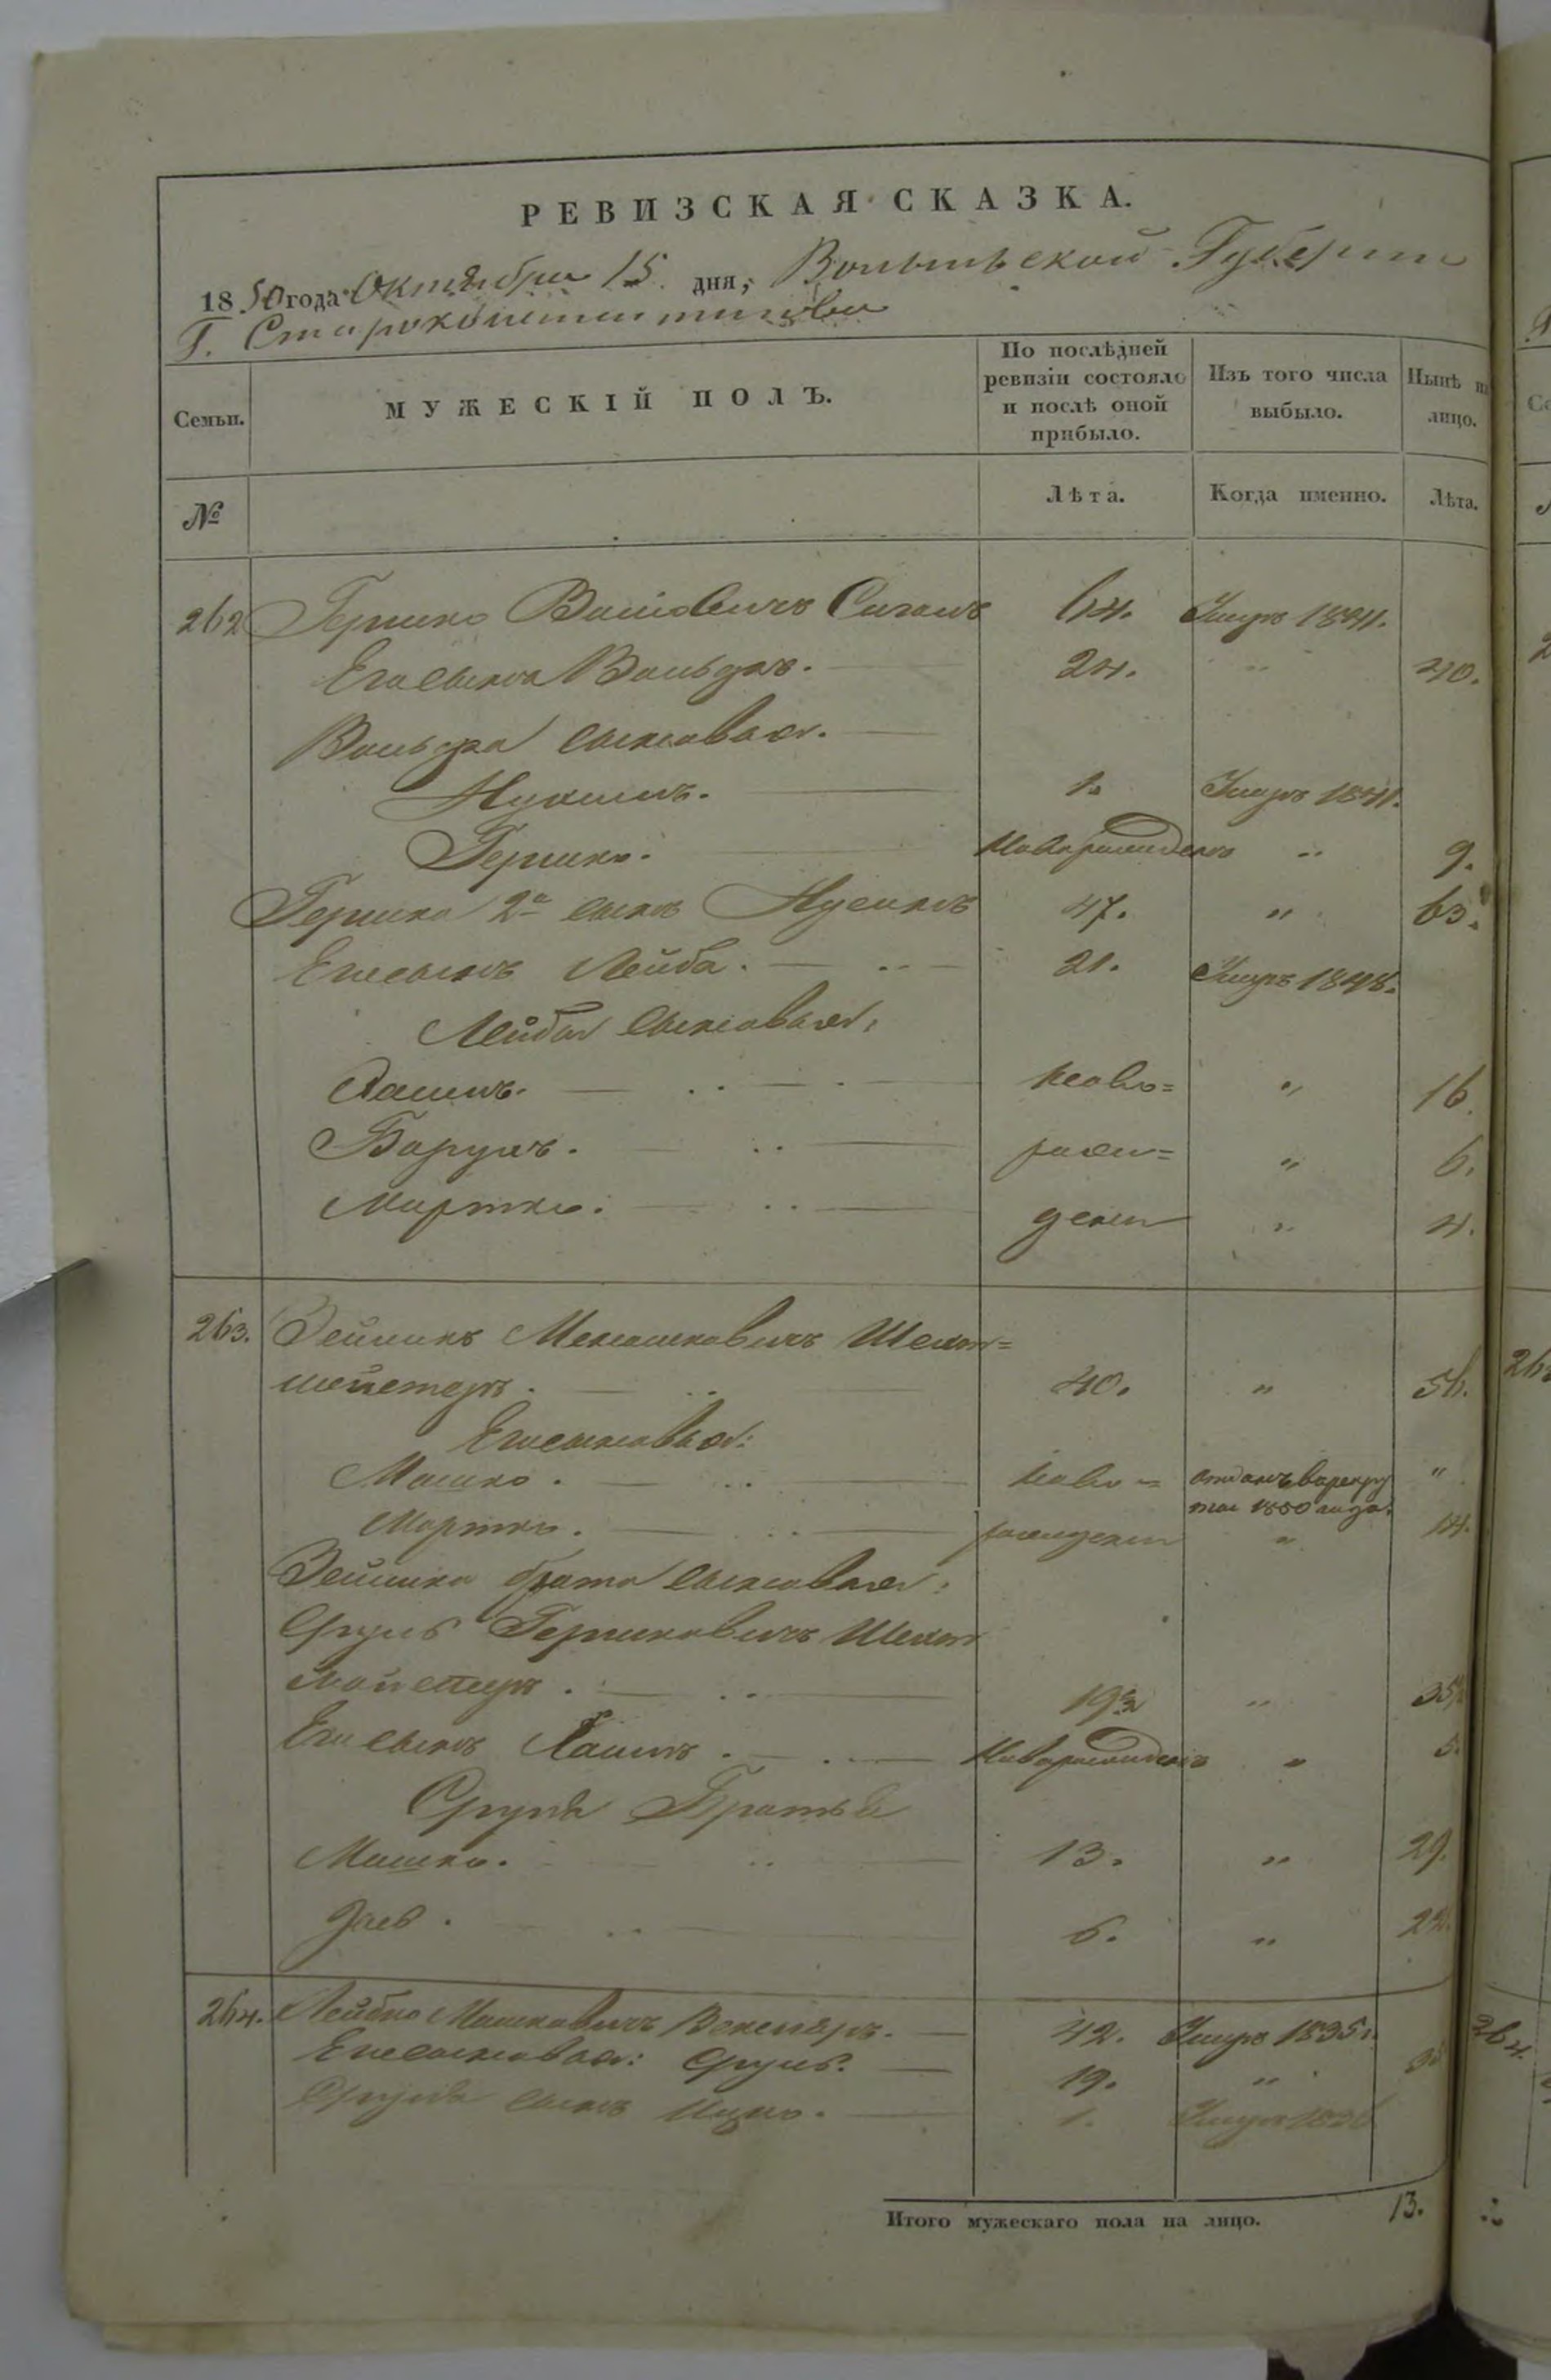 РЕВИЗСКАЯ СКАЗКА.
1850 года Октября 15 дня, Волынской Губернии
Г. Староконстантинова
Семьи. МУЖЕСКІЙ ПОЛЪ. По послѣдней ревизіи состояло и послѣ оной прибыло. Изъ того числа выбыло. Нынѣ на лицо.
№ Лѣта. Когда именно. Лѣта.
262 Гершко Сиганъ 64. Умеръ 1841.
Его сынъ Вольфъ. 24. " 40.
Вольфа сыновья.
Нухимъ. 1. Умеръ 1841.
Гершко. Новорожденъ " 9.
Гершка 2й сынъ Нусинъ 47. " 63.
Его сынъ Лейба. 21. Умеръ 1848.
Лейбы сыновья:
Хаимъ. ново= " 16.
Борухъ. рожи= " 6.
Мортко. дены " 4.
263. Зейликъ Мошковичъ
мейстеръ. 40. " 56.
Его сыновья:
Мошко. ново= отданъ в рекру "
ты 1850 года.
Мортко. рождены " 14.
Зейлика брата сыновья:
Сруль Гершковичъ
мейстеръ. 19½ " 35½
Его сынъ Хаимъ. Новорожденъ " 5.
Сруля Братья
Мошко. 13. " 29.
6. " 22.
264. Лейбко Мошковичъ 42. Умеръ 1835.
Его сыновья: Сруль. 19. " 35
Сруля сынъ Ицко. 1. Умеръ 1836
Итого мужескаго пола на лицо. 13.
264.